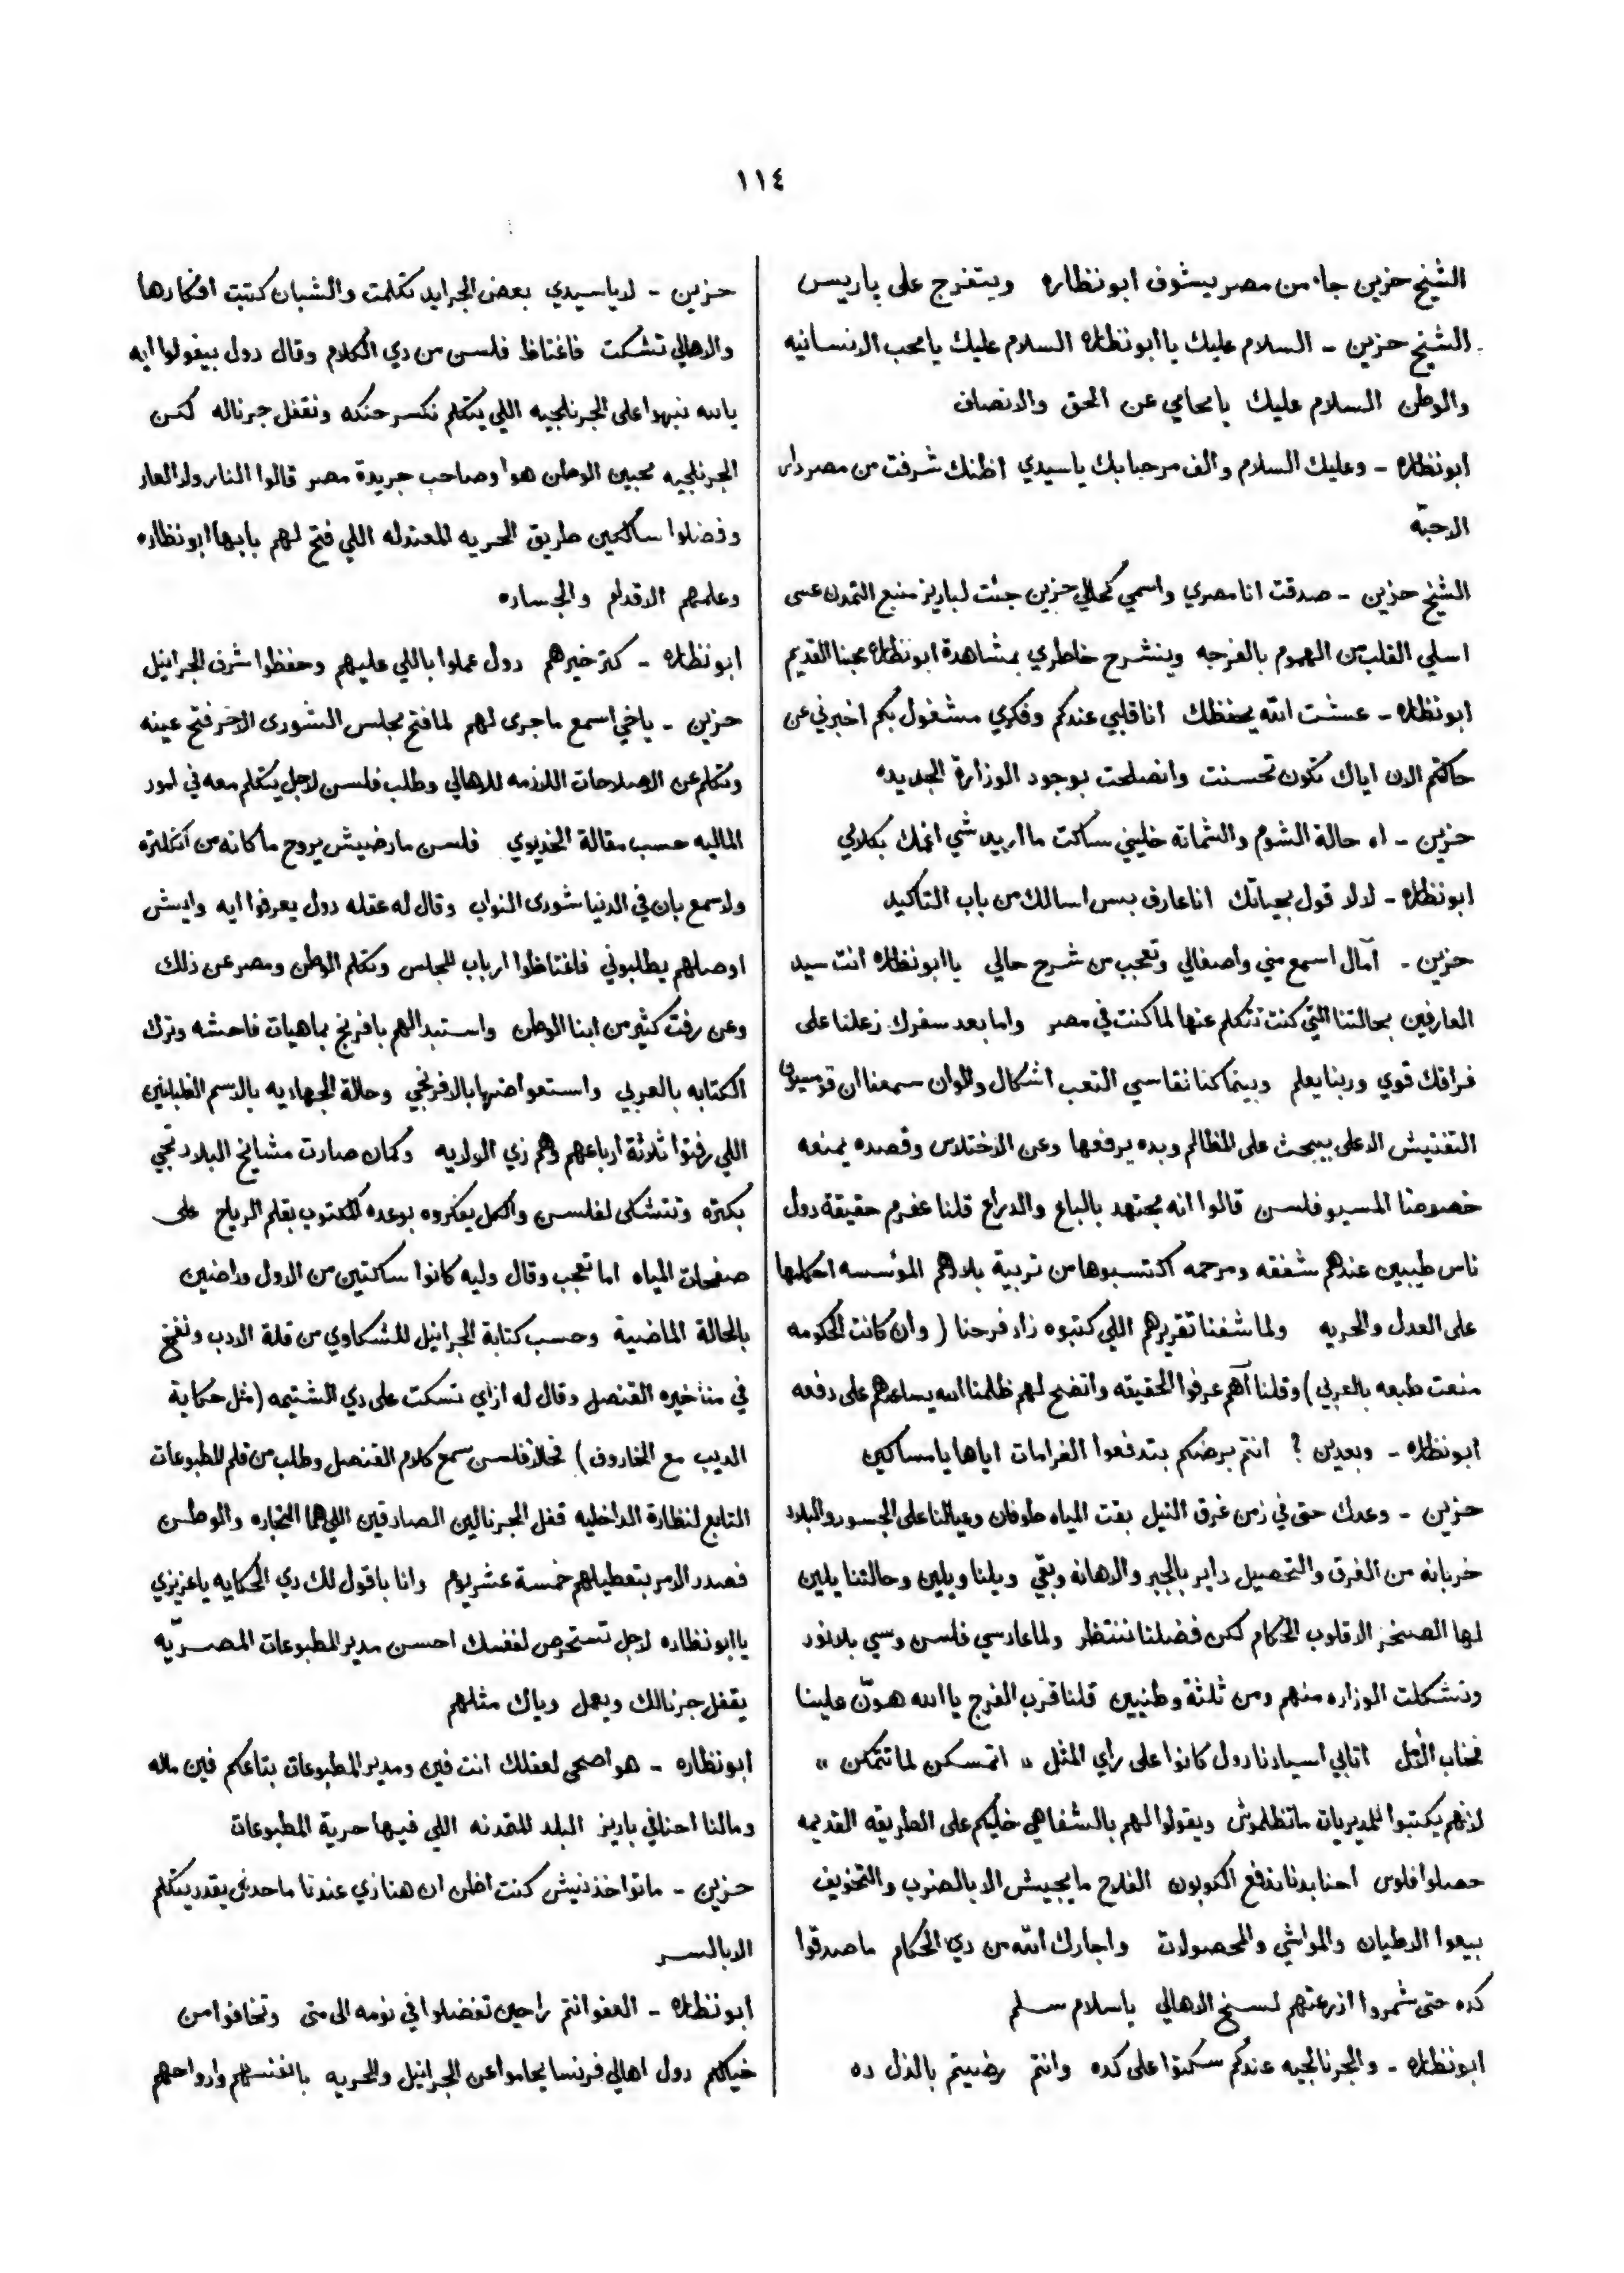 ١١٤
الشيخ حزين جاء من مصر يشوف ابونظاره ويتفرج على باريس
الشيخ حزين - السلام عليك يا ابونظاره السلام عليك يا محب الانسانيه
والوطن السلام عليك يا محامي عن الحق والانصاف
ابونظاره - وعليك السلام والف مرحبا بك ياسيدي اظنك شرفت من مصر دار
الاحبّه
الشيخ حزين - صدقت انا مصري واسمي كحالي حزين جئت لباريز منبع التمدن عسى
اسلي القلب من الهموم بالفرجه وينشرح خاطري بمشاهدة ابونظاره محبنا القديم
ابونظاره - عشت الله يحفظك انا قلبي عندكم وفكري مشغول بكم اخبرني عن
حالتكم الان اياك تكون تحسنت وانصلحت بوجود الوزارة الجديده
حزين - اه حالة الشوم والشماته خليني ساكت ما اريد شي اغمك بكلامي
ابونظاره - لا لا قول بحياتك انا عارف بس اسالك من باب التاكيد
حزين - آمال اسمع مني واصغالي وتعجب من شرح حالي يا ابونظاره انت سيد
العارفين بحالتنا التي كنت تتكلم عنها لما كنت في مصر واما بعد سفرك زعلنا على
فراقك قوي وربنا يعلم وبينما كنا نقاسي التعب اشكال والوان سمعنا ان قومسيون
التفتيش الاعلى بيبحث على المظالم وبده يرفعها وعن الاختلاس وقصده يمنعه
خصوصًا المسيو فلسن قالوا انه مجتهد بالباع والدراع قلنا عفرم حقيقة دول
ناس طيبين عندهم شفقه ومرحمه اكتسبوها من تربية بلادهم المؤسسه احكامها
على العدل والحريه ولما شفنا تقريرهم اللي كتبوه زاد فرحنا ( وان كانت الحكومه
منعت طبعه بالعربي ) وقلنا آهم عرفوا الحقيقه واتضح لهم ظلمنا الله يساعدهم على دفعه
ابونظاره - وبعدين ؟ انتم برضكم بتدفعوا الغرامات اياها يا مساكين
حزين - وعدك حتى في زمن غرق النيل بقت المياه طوفان وعيالنا على الجسور والبلاد
خربانه من الغرق والتحصيل داير بالجبر والاهانه وبقي ويلنا ويلين وحالتنا يلين
لها الصخر الا قلوب الحكام لكن فضلنا ننتظر ولما عاد سي فلسن وسي بلانور
وتشكلت الوزاره منهم ومن ثلثة وطنيين قلنا قرب الفرج يا الله هوّن علينا
فخاب الامل اتابي اسيادنا دول كانوا على راي المثل « اتمسكن لما تتمكن »
لانهم يكتبوا للمديريات ماتظلموش ويقولوا لهم بالشفاهي خليكم على الطريقه القديمه
حصلوا فلوس احنا بدنا ندفع الكوبون الفلاح ما يجيش الا بالضرب والتخويف
بيعوا الاطيان والمواشي والمحصولات واجارك الله من دي الحكام ما صدقوا
كده حتى شمروا اذرعتهم لسلخ الاهالي يا سلام سلم
ابونظاره - والجرنالجيه عندكم سكتوا على كده وانتم رضيتم بالذل ده
حزين - لا ياسيدي بعض الجرايد تكلمت والشبان كتبت افكارها
والاهالي تشكت فاغتاظ فلسن من دي الكلام وقال دول بيقولوا ايه
يا لله نبهوا على الجرنلجيه اللي يتكلم نكسر حنكه ونقفل جرناله لكن
الجرنلجيه محبين الوطن هوا وصاحب جريدة مصر قالوا النار ولا العار
وفضلوا سالكين طريق الحريه المعتدله اللي فتح لهم بابها ابونظاره
وعلمهم الاقدام والجساره
ابونظاره - كتر خيرهم دول عملوا باللي عليهم وحفظوا شرف الجرانيل
حزين - ياخي اسمع ما جرى لهم لما فتح مجلس الشورى الاخر فتح عينه
وتكلم عن الاصلاحات اللازمه للاهالي وطلب فلسن لاجل يتكلم معه في امور
الماليه حسب مقالة الخديوي فلسن مارضيش يروح ما كانه من انكلتره
ولا سمع بان في الدنيا شورى النواب وقال له عقله دول يعرفوا ايه وايش
اوصلهم يطلبوني فاغتاظوا ارباب المجلس وتكلم الوطن ومصر عن ذلك
وعن رفت كثير من ابنا الوطن واستبدالهم بافرنج بماهيات فاحشه وترك
الكتابه بالعربي واستعواضها بالافرنجي وحالة الجهاديه بالاسم الغلبانين
اللي رفتوا ثلاثة ارباعهم وهم زي الولايه وكمان صارت مشايخ البلاد تجي
بكتره وتتشكى لفلسن والكل يفكروه بوعده المكتوب بقلم الرياح على
صفحات المياه اما تعجب وقال وليه كانوا ساكتين من الاول وراضين
بالحالة الماضية وحسب كتابة الجرانيل للشكاوي من قلة الادب ونفخ
في مناخيره القنصل وقال له ازاي تسكت على دي الشتيمه ( مثل حكاية
الديب مع الخاروف ) فحالاً فلسن سمع كلام القنصل وطلب من قلم المطبوعات
التابع لنظارة الداخليه قفل الجرنالين الصادقين اللي هما التجاره والوطن
فصدر الامر بتعطيلهم خمسة عشر يوم وانا باقول لك دي الحكايه ياعزيزي
يا ابونظاره لاجل تستحرص لنفسك احسن مدير المطبوعات المصريّه
يقفل جرنالك ويعمل وياك مثلهم
ابونظاره - هو اصحى لعقلك انت فين ومدير المطبوعات بتاعكم فين ماله
ومالنا احنا في باريز البلد المتمدنه اللي فيها حرية المطبوعات
حزين - ماتواخذنيش كنت اظن ان هنا زي عندنا ماحدش يقدر يتكلم
الا بالسر
ابونظاره - العفو انتم راحين تفضلوا في نومه الى متى وتخافوا من
خيالكم دول اهالي فرنسا يحاموا عن الجرانيل والحريه بانفسهم وارواحهم